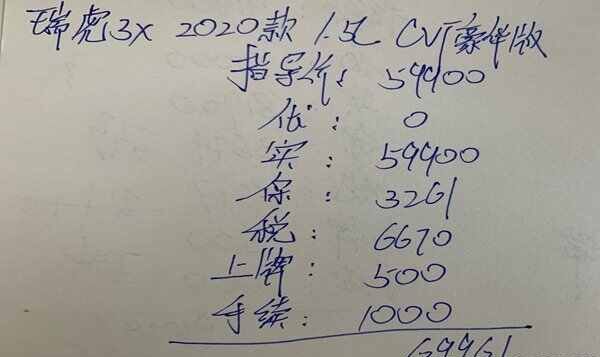 瑞虎3X 2020款 1.5L CVT豪华版
指导价: 59900
优: 0
实: 59900
保: 3261
税: 6670
上牌: 500
手续: 1000
69961